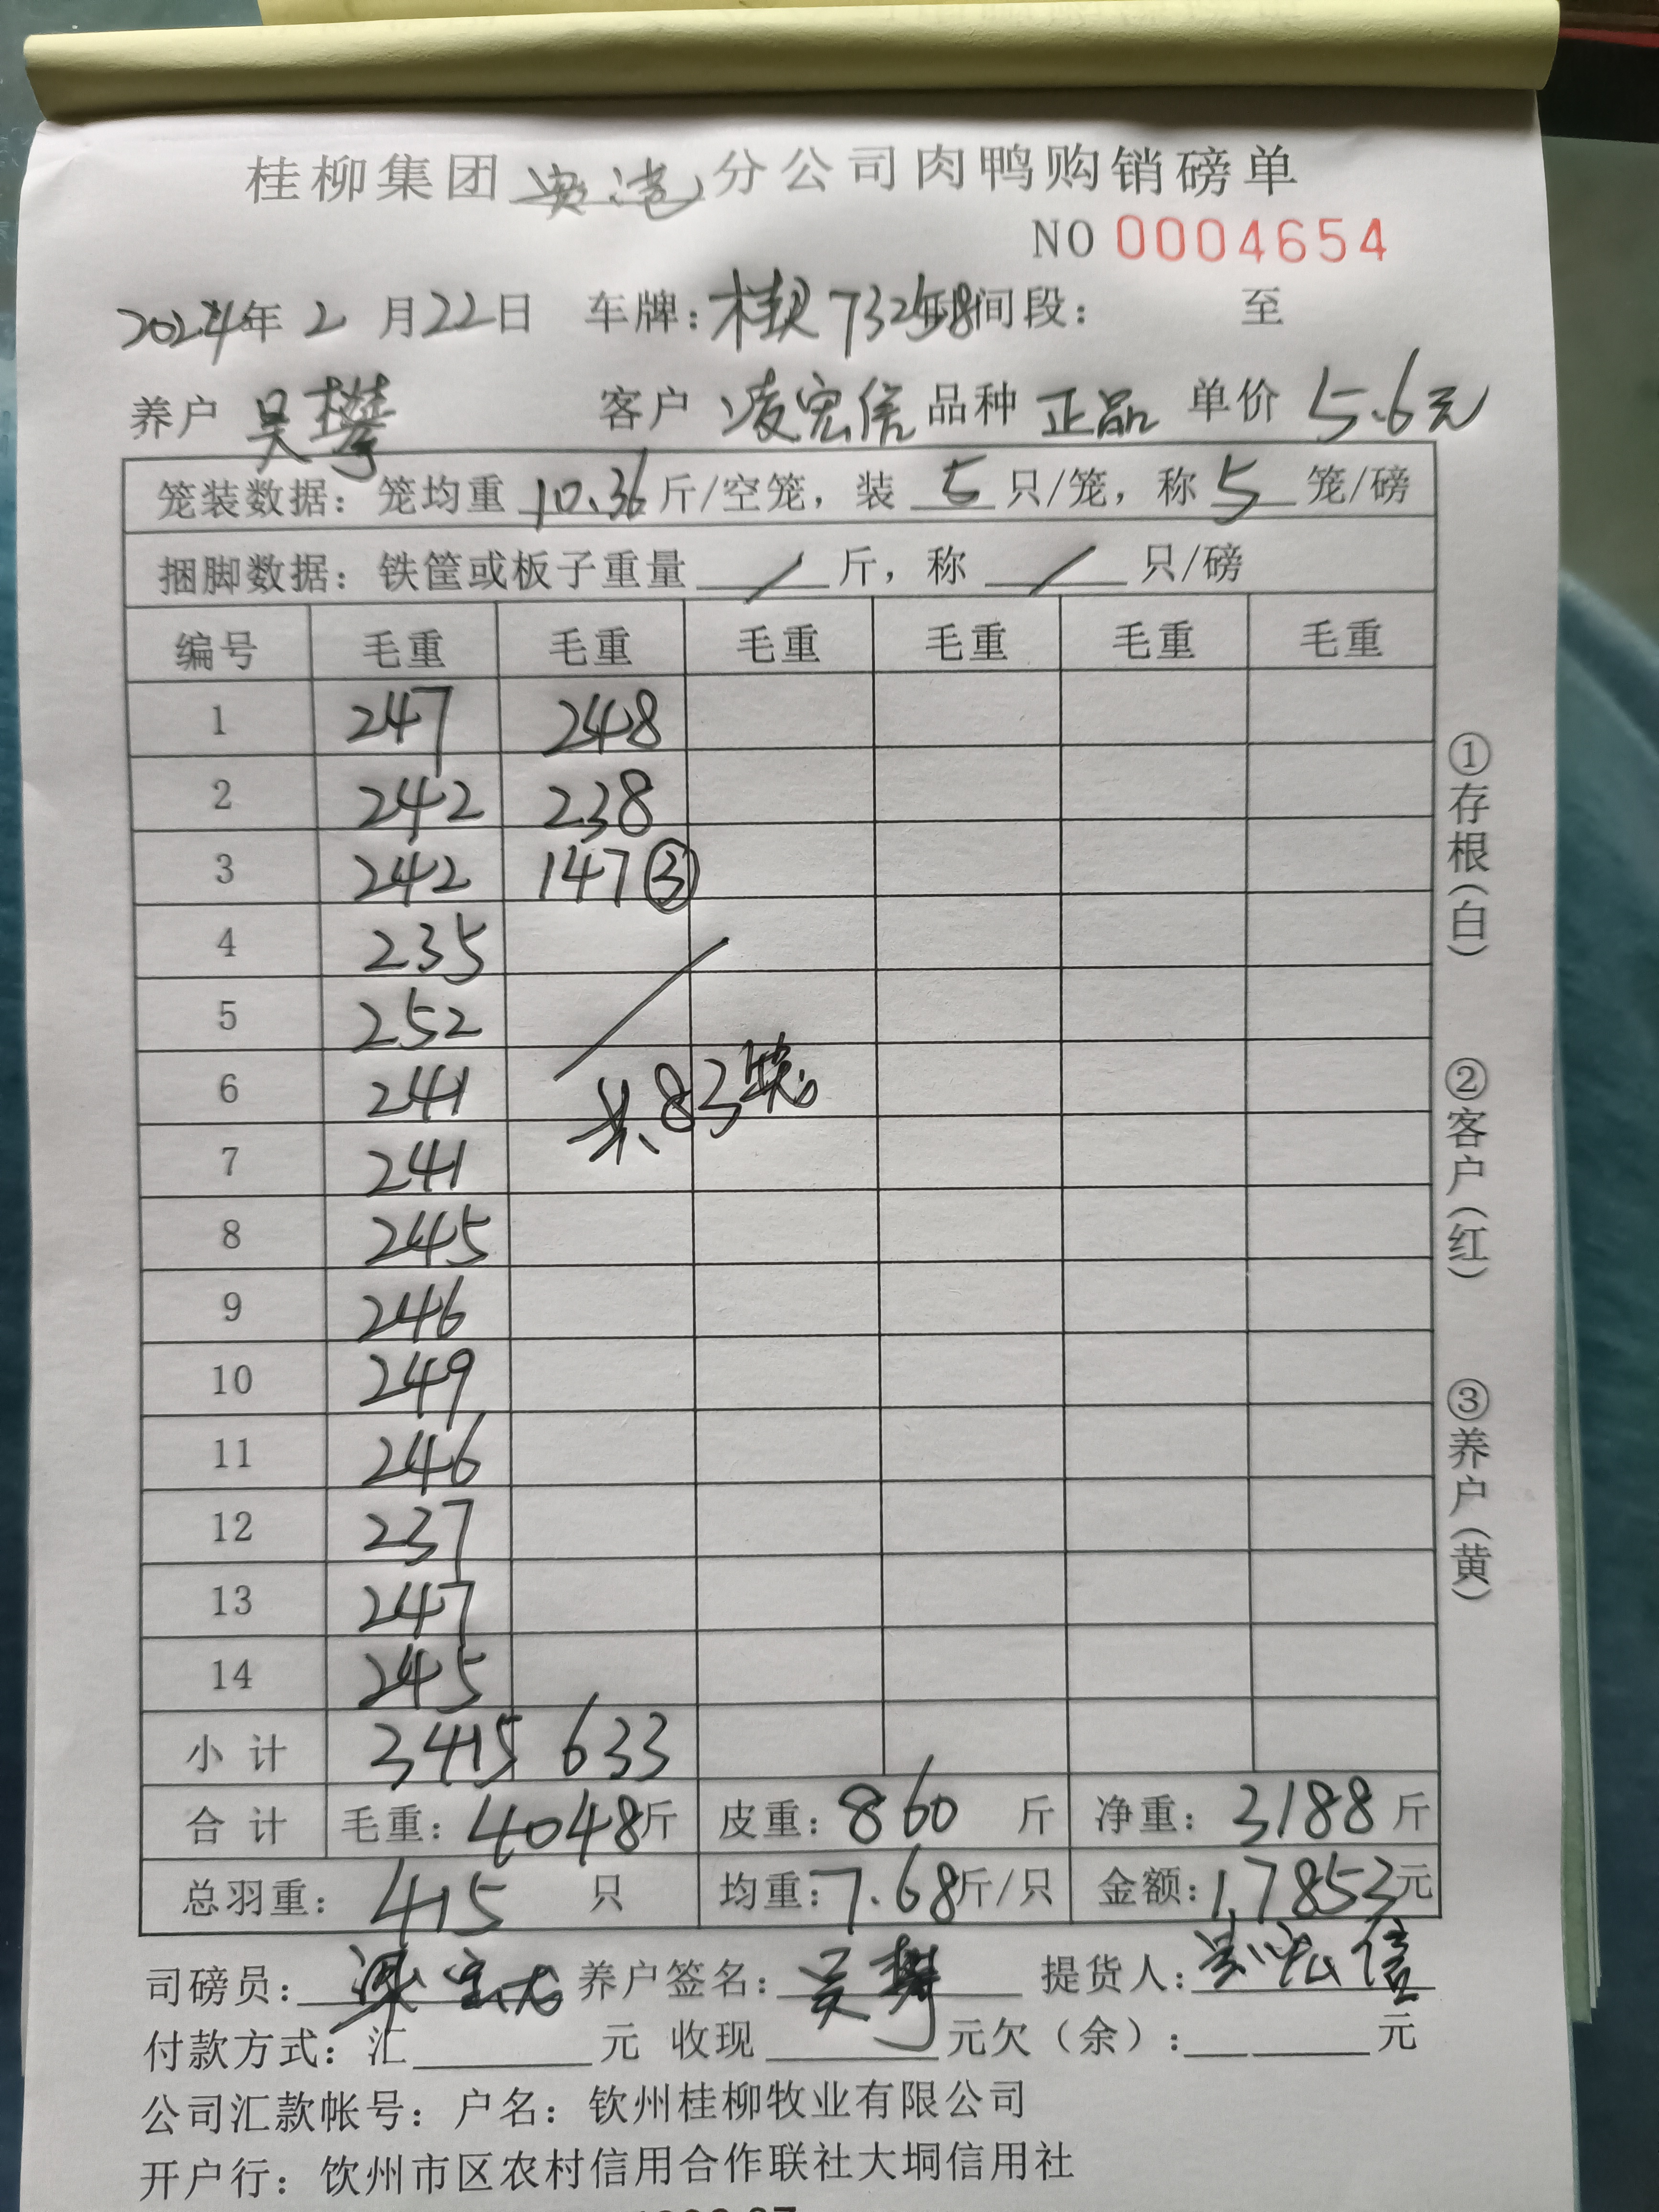 桂柳集团贵港分公司肉鸭购销磅单
NO 0004654
2024年 2 月22日 车牌：桂R 73258 时间段： 至
养户 吴攀 客户 凌宏信 品种 正品 单价 5.6元
笼装数据：笼均重 10.36 斤/空笼，装 5 只/笼，称 5 笼/磅
捆脚数据：铁筐或板子重量 / 斤，称 / 只/磅
编号 毛重 毛重 毛重 毛重 毛重 毛重
1 247 248
2 242 238
3 242 147③
4 235
5 252
6 241
共83笼
7 241
8 245
9 246
10 249
11 246
12 237
13 247
14 245
小 计 3415 633
合 计 毛重：4048斤 皮重：860 斤 净重：3188 斤
总羽重：415 只 均重：7.68斤/只 金额：17853元
司磅员： 养户签名：吴攀 提货人：宏信
付款方式：汇 元 收现 元欠（余）： 元
公司汇款帐号：户名：钦州桂柳牧业有限公司
开户行：饮州市区农村信用合作联社大垌信用社
①存根（白）
②客户（红）
③养户（黄）